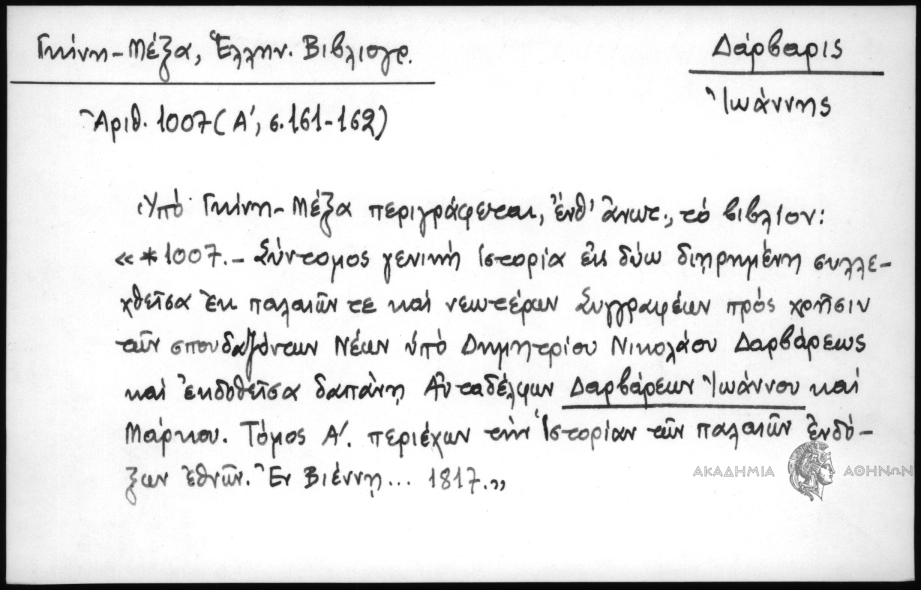 Γκίνη-Μέξα, Ἑλλην. Βιβλιογρ.
Δάρβαρις
Ἰωάννης
Ἀριθ. 1007 (Α', σ. 161-162)
Ὑπό Γκίνη-Μέξα περιγράφεται, ἔνθ' ἄνωτ., τό βιβλίον:
«*1007.- Σύντομος γενική Ἱστορία ἐκ δύω διῃρημένη συλλε-
χθεῖσα ἐκ παλαιῶν τε καί νεωτέρων Συγγραφέων πρός χρῆσιν
τῶν σπουδαζόντων Νέων ὑπό Δημητρίου Νικολάου Δαρβάρεως
καί ἐκδοθεῖσα δαπάνῃ Αὐταδέλφων Δαρβάρεων Ἰωάννου καί
Μάρκου. Τόμος Α'. περιέχων τήν Ἱστορίαν τῶν παλαιῶν ἐνδό-
ξων ἐθνῶν. Ἐν Βιέννῃ... 1817.»
ΑΚΑΔΗΜΙΑ ΑΘΗΝΩΝ